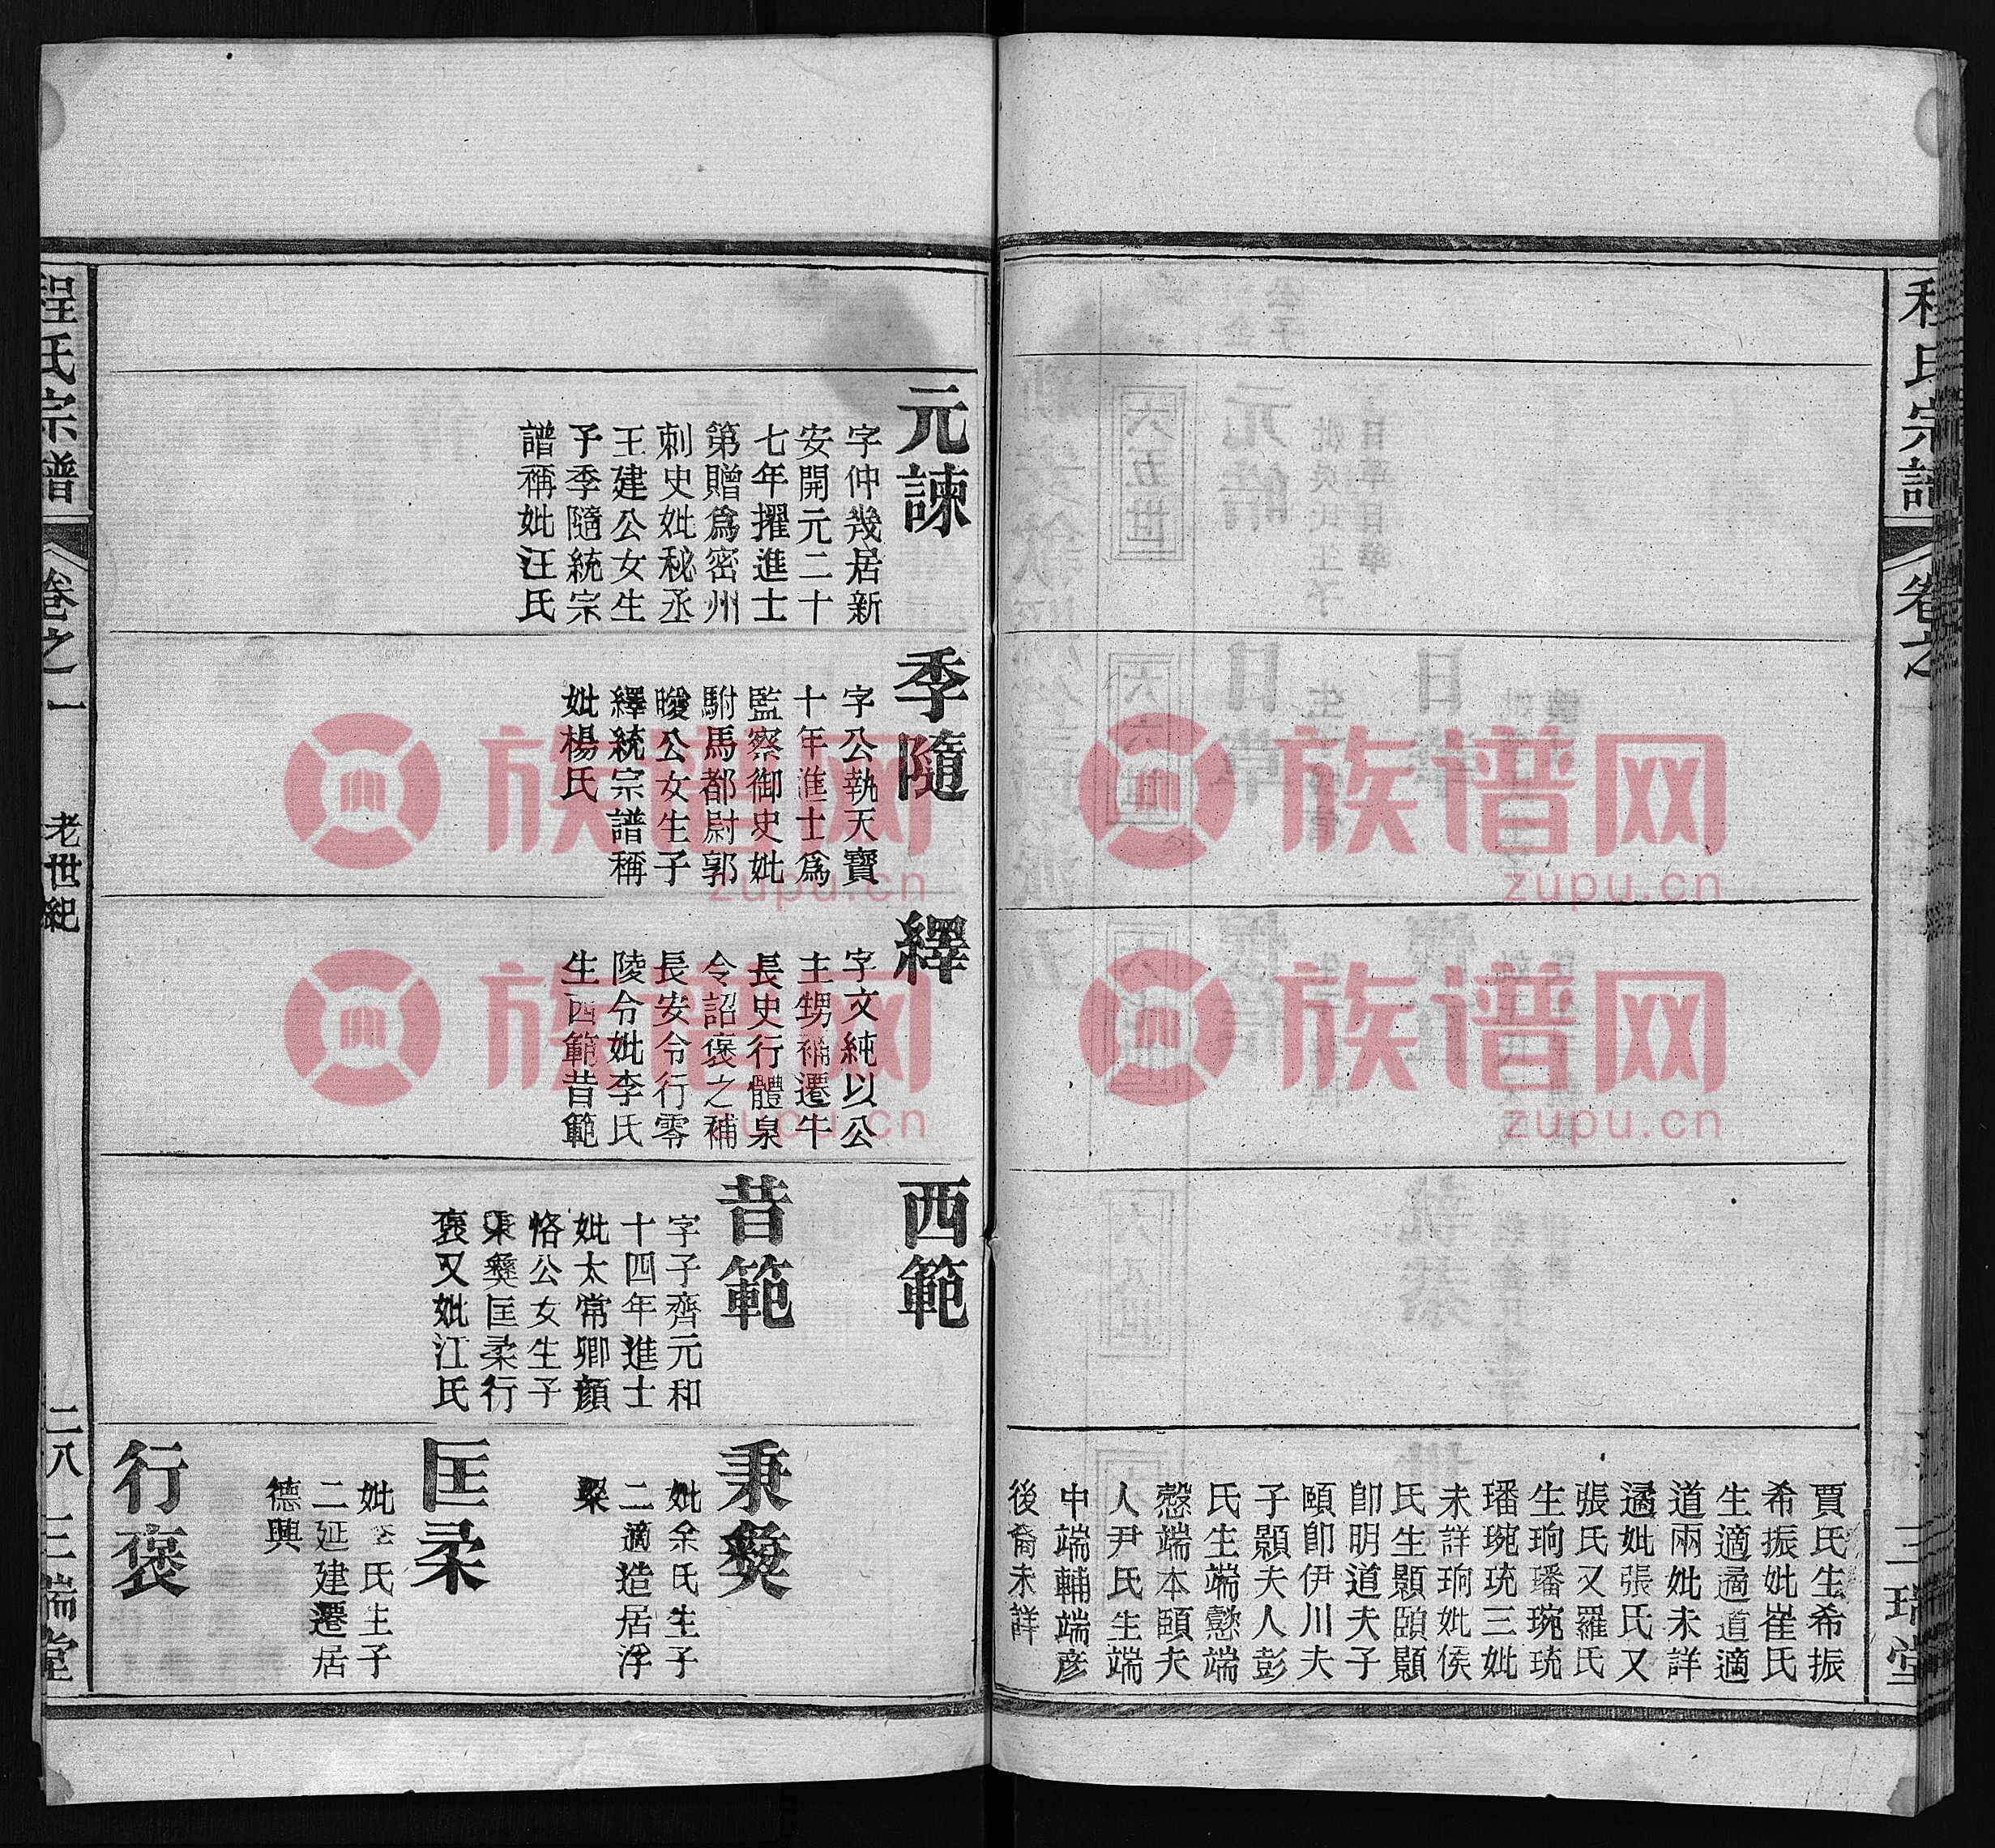 程氏宗譜
卷之
三瑞堂
賈氏生希振
希振妣崔氏
生適遹道適
道兩妣未詳
遹妣張氏又
張氏又羅氏
生珦璠琬珫
璠琬珫三妣
未詳珦妣侯
氏生顥頤顥
卽明道夫子
頤卽伊川夫
子顥夫人彭
氏生端懿端
慤端本頤夫
人尹氏生端
中端輔端彥
後裔未詳
元諫
字仲幾居新
安開元二十
七年擢進士
第贈爲密州
刺史妣秘丞
王建公女生
子季隨統宗
譜稱妣汪氏
季隨
字公執天寶
十年進士爲
監察御史妣
駙馬都尉郭
曖公女生子
繹統宗譜稱
妣楊氏
繹
字文純以公
主甥補遷牛
長史行體泉
令詔褒之補
長安令行零
陵令妣李氏
生西範昔範
西範
昔範
字子齊元和
十四年進士
妣太常卿顏
恪公女生子
秉彜匡柔行
褒又妣江氏
秉彜
妣余氏生子
二適造居浮
梁
匡柔
妣 氏生子
二延建遷居
德興
行褒
程氏宗譜
卷之一
老世紀
二八
三瑞堂
族谱网
zupu.cn
族谱网
zupu.cn
族谱网
zupu.cn
族谱网
zupu.cn